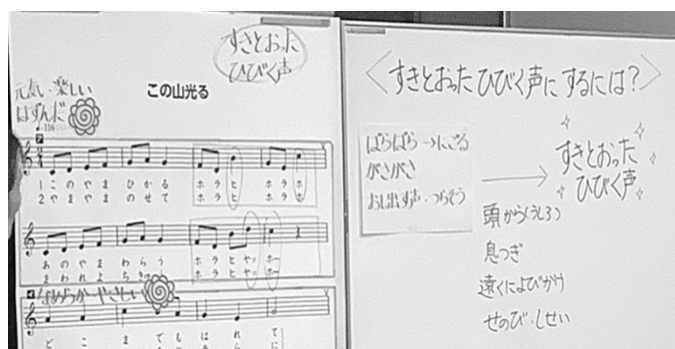 すきとおった
ひびく声
元気・楽しい
はずんだ
この山光る
1 このやま ひかる ホラヒ ホラホ
2 やままの せて ホラヒ ホラホ
あのやま わらう ホラヒヤッ ホー
まわれよ ホラヒヤッ ホー
なめらか やさしい
どこ までもはれて
〈すきとおった ひびく声に するには?〉
ばらばら→にごる
がさがさ
おし出す声・つらそう
すきとおった
ひびく声
頭から(うしろ)
息つぎ
遠くによびかけ
せのび・しせい